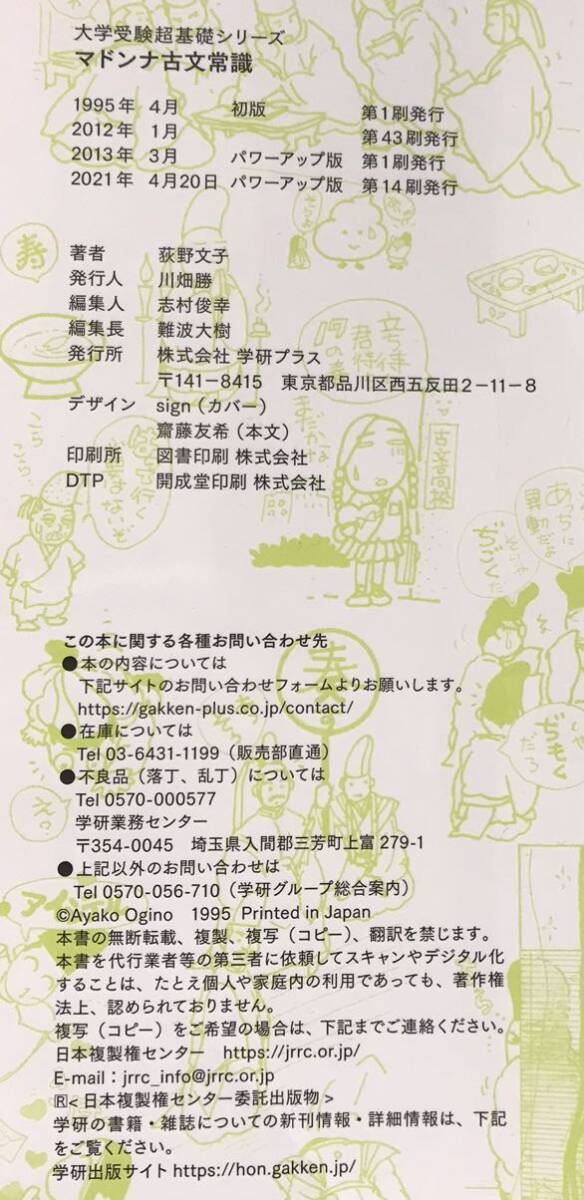 大学受験超基礎シリーズ
マドンナ古文常識
1995年 4月 初版 第1刷発行
2012年 1月 第43刷発行
2013年 3月 パワーアップ版 第1刷発行
2021年 4月20日 パワーアップ版 第14刷発行
著者 荻野文子
発行人 川畑勝
編集人 志村俊幸
編集長 難波大樹
発行所 株式会社 学研プラス
〒141-8415 東京都品川区西五反田2-11-8
デザイン sign（カバー）
齋藤友希（本文）
印刷所 図書印刷 株式会社
DTP 開成堂印刷 株式会社
この本に関する各種お問い合わせ先
●本の内容については
下記サイトのお問い合わせフォームよりお願いします。
https://gakken-plus.co.jp/contact/
●在庫については
Tel 03-6431-1199（販売部直通）
●不良品（落丁、乱丁）については
Tel 0570-000577
学研業務センター
〒354-0045 埼玉県入間郡三芳町上富 279-1
●上記以外のお問い合わせは
Tel 0570-056-710（学研グループ総合案内）
©Ayako Ogino 1995 Printed in Japan
本書の無断転載、複製、複写（コピー）、翻訳を禁じます。
本書を代行業者等の第三者に依頼してスキャンやデジタル化
することは、たとえ個人や家庭内の利用であっても、著作権
法上、認められておりません。
複写（コピー）をご希望の場合は、下記までご連絡ください。
日本複製権センター https://jrrc.or.jp/
E-mail：jrrc_info@jrrc.or.jp
Ⓡ<日本複製権センター委託出版物>
学研の書籍・雑誌についての新刊情報・詳細情報は、下記
をご覧ください。
学研出版サイト https://hon.gakken.jp/
寿
立ち待
君待
まだかな
あっちに
異動だよ
ぢごくだ
ぢもく
だろ
え?
寿